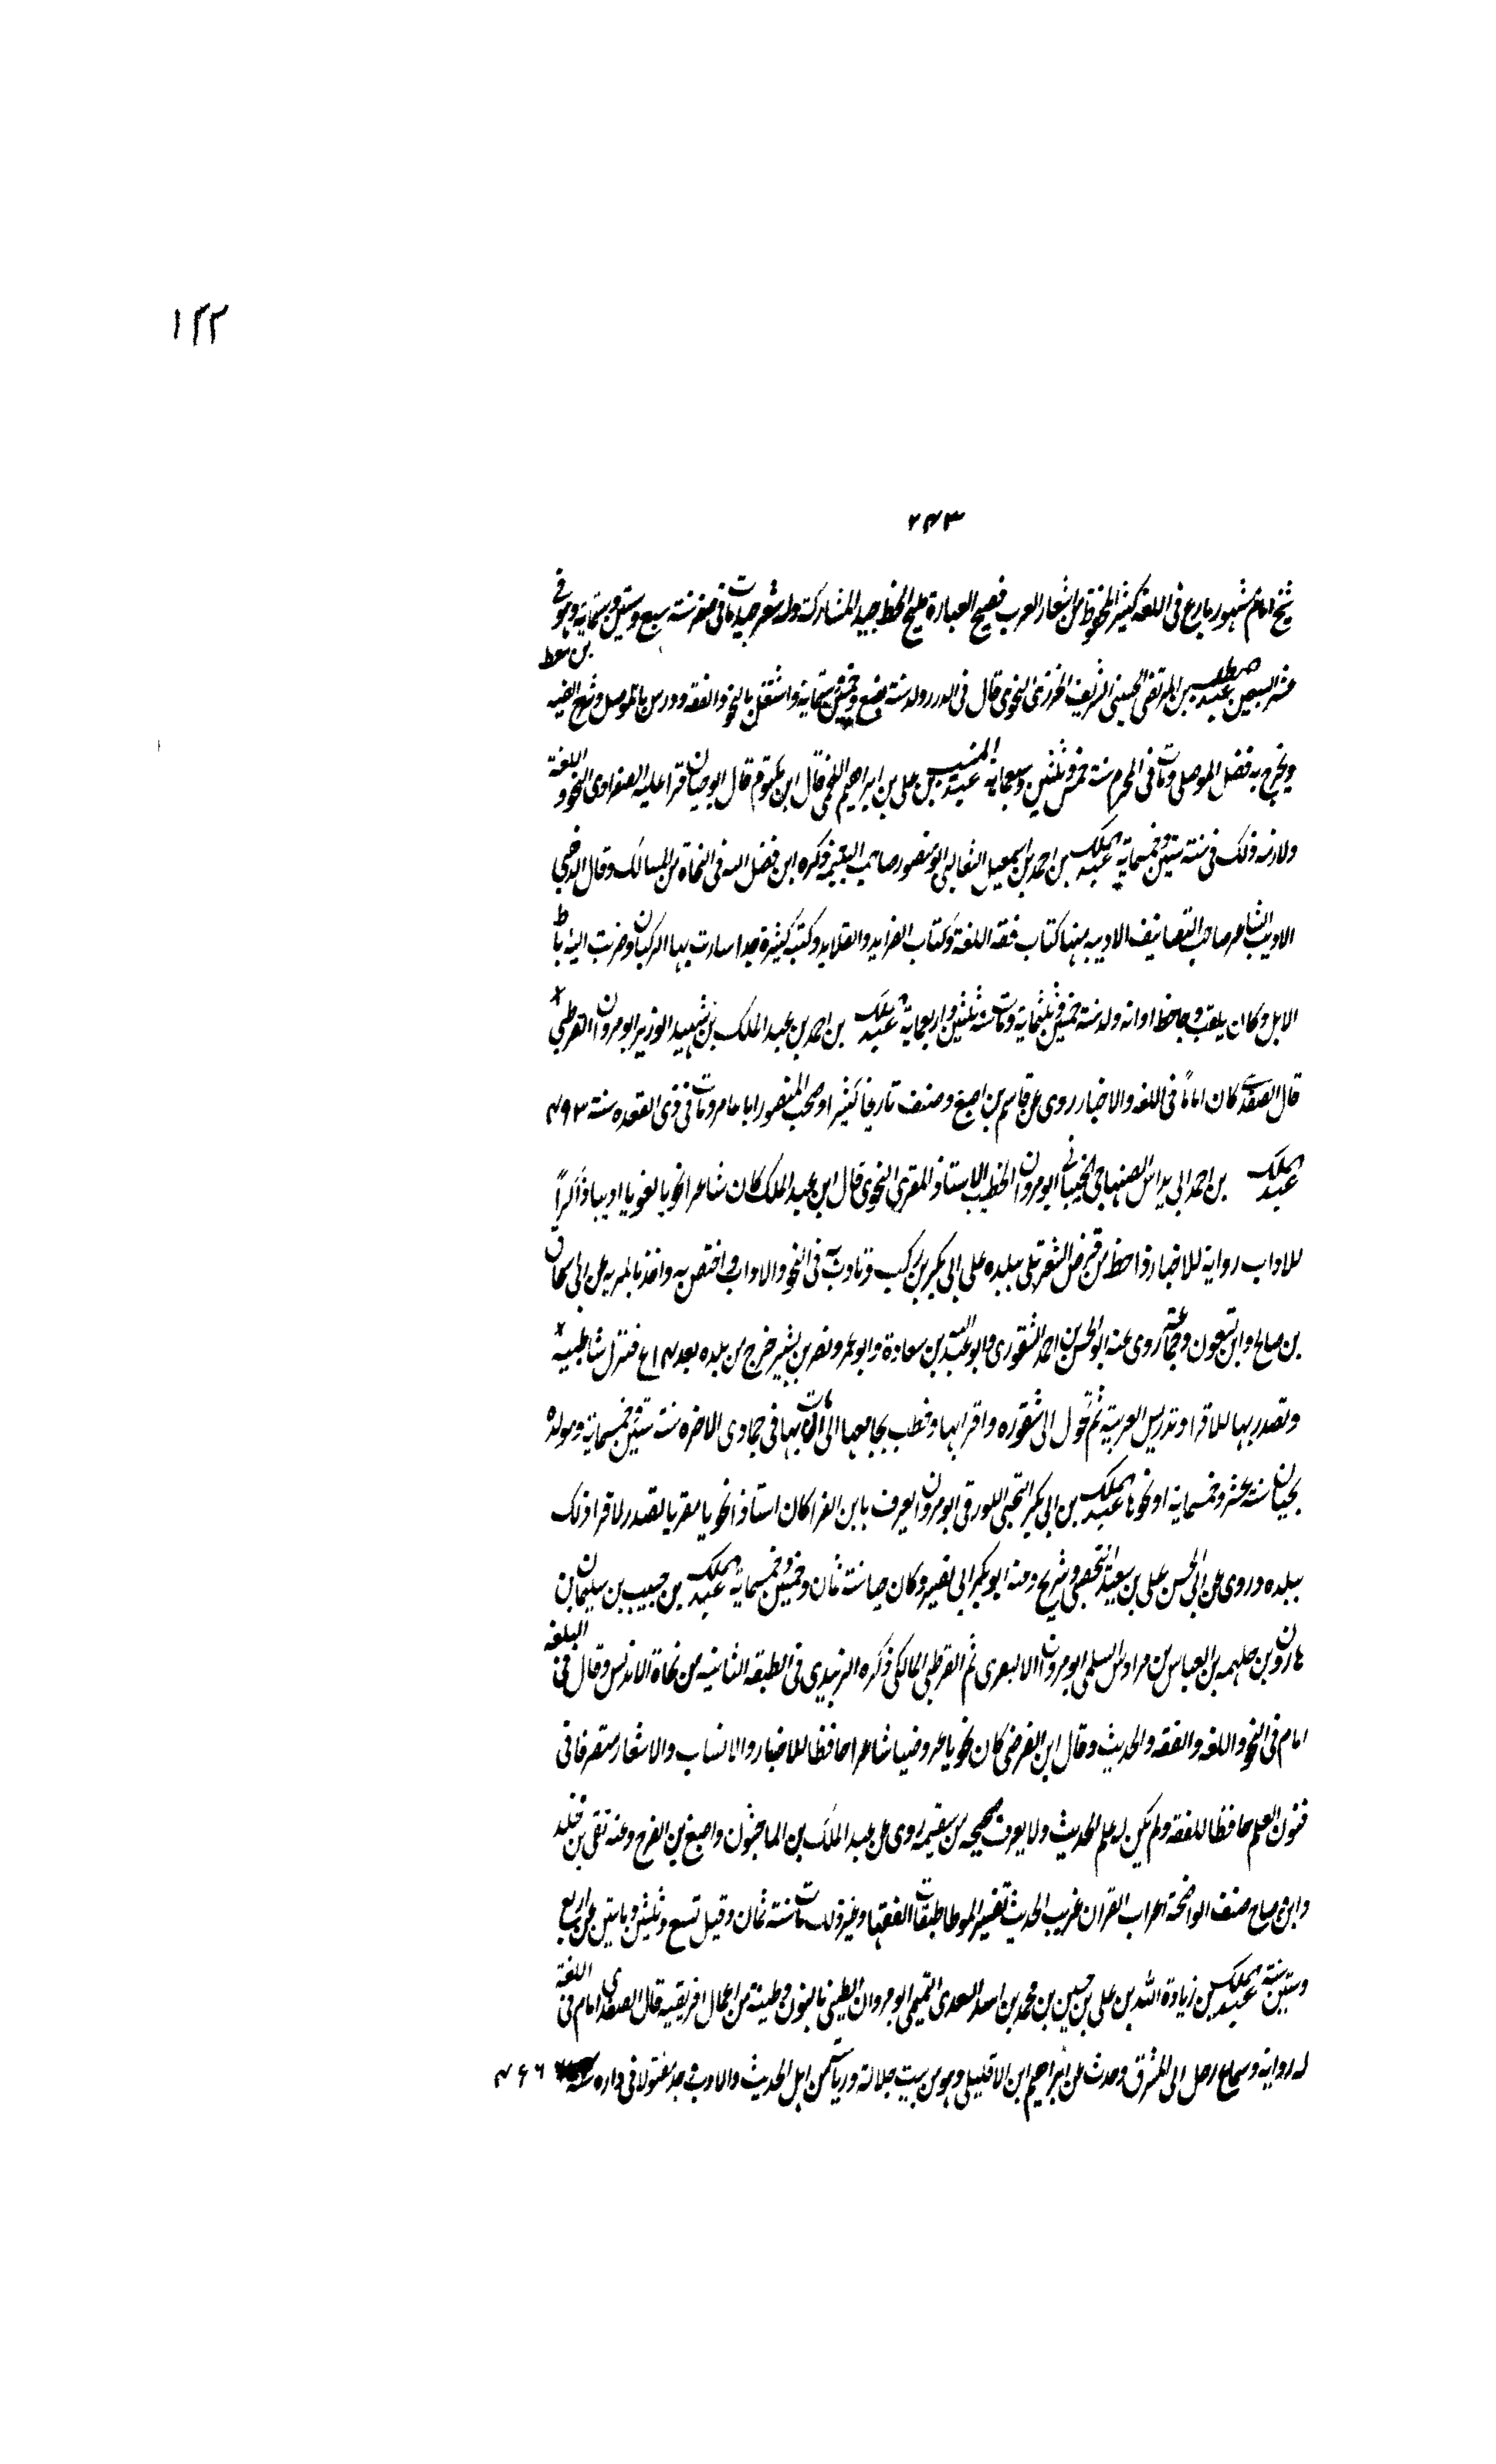 ١٣٣
٢٤٣
شيخ امام مشهور بارع فى اللغة كثير المحفوظ من اشعار العرب فصيح العبارة مليح الخط جيد المشاركة وله شعر جيد مات فى صفر سنة سبع وستين وستمائة وهو فى
عشر السبعين عبد المطلب بن المرتضى الحسينى الشريف الجزرى النحوى قال فى الدرر ولد سنة بضع وخمسين وستمائة واشتغل بالنحو والفقه ودرس بالموصل وشرح الفية بن معط
وتخرج به فضل الموصلى ومات فى المحرم سنة خمس وثلثين وسبعماية عبد المنعم بن على بن ابراهيم اللخمى قال ابن مكتوم قال ابو حيان قرا عليه الصفراوى النحو واللغة
ولازمه وذلك فى سنة ستين وخمسماية عبد الملك بن احمد بن اسمعيل الثعالبى ابو منصور صاحب اليتيمة ذكره ابن فضل الله فى النحاة من المسالك وقال الذهبى
الاديب الشاعر صاحب التصانيف الادبيه منها كتاب فقه اللغة وكتاب الفرايد والقلايد وكتبه كثيرة جدا سارت بها الركبان وضربت اليه اباط
الابل وكان يلقب بجاحظ اوانه ولد سنة خمسين وثلثماية ومات سنة ثلثين واربعماية عبد الملك بن احمد بن عبد الملك بن شهيد الوزير ابو مروان القرطبى
قال الصفدى كان اماما فى اللغه والاخبار روى عن قاسم بن اصبغ وصنف تاريخا كثيرا وصحب المنصور ابا عامر ومات فى ذى القعده سنة ٣٩٣
عبد الملك بن احمد ابى يداس الصنهاجى الجيانى ابو مروان الخطيب الاستاذ المقرى النحوى قال ابن عبد الملك كان شاعرا نحويا لغويا اديبا ذاكراً
للاداب رواية للاخبار ذا حظ من قرض الشعر تلى ببلده على ابى بكر بن ركب وتادب به فى النحو والاداب واختص به واخذ بالمريه عن ابى اسحاق
بن صالح وابن تسعون وجماعة روى عنه ابو الحسن بن احمد الشقورى وابو عبد الله بن سعادة وابو عمر ونصر بن بشير خرج من بلده بعد فنزل شاطبية
وتصدر بها للاقرا وتدريس العربية ثم تحول الى شقوره واقرا بها وخطب بجامعها الى ان مات بها فى جمادى الاخره سنة ستين وخمسماية ومولده
بجيان سنة عشر وخمسماية او نحوها عبد الملك بن ابى بكر التجيبى اللورقى ابو مروان يعرف بابن الفرا كان استاذا نحويا مقريا تصدر لاقرا ذلك
ببلده وروى عن ابى الحسن على بن سعيد وشريح وعنه ابو بكر ابى نصير وكان حيا سنة ثمان وخمسين وخمسماية عبد الملك بن حبيب بن سليمان بن
هارون بن جلهمه بن العباس بن مرداس السلمى ابو مروان الالبيرى ثم القرطبى المالكى ذكره الزبيدى فى الطبقه الثانيه من نحاة الاندلس وقال فى البلغه
امام فى النحو واللغه والفقه والحديث وقال ابن الفرضى كان نحويا عروضيا شاعرا حافظا للاخبار والانساب والاشعار متصرفا فى
فنون العلم حافظا للفقه ولم يكن له علم الحديث ولا يعرف صحيحه من سقيمه روى عن عبد الملك بن الماجشون واصبغ بن الفرج وعنه بقى بن مخلد
وابن وضاح صنف الواضحة اعراب القران غريب الحديث تفسير الموطا طبقات الفقها وغير ذلك مات سنة ثمان وقيل تسع وثلثين وماتين عن اربع
وستين سنة عبد الملك بن زيادة الله بن على بن حسين بن محمد بن اسد السعدى التميمى ابو مروان الطبنى بالنون وطبنة من اعمال افريقيه قال الصفدى امام فى اللغة
له رواية وسماع رحل الى المشرق وحدث عن ابراهيم ابن الافليلى وهو من بيت جلالة ورياسة من اهل الحديث والادب وجد مقتولا فى داره سنة ٤٥٦